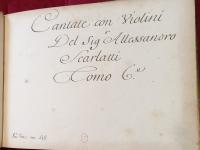 Cantate con Violini
Del Sig.r Alessandro
Scarlatti
Tomo